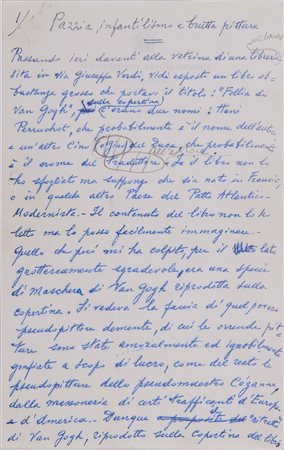 1/ Pazzia, infantilismo e brutta pittura
Passando ieri davanti alla vetrina di una libreria
sita in via Giuseppe Verdi, vidi esposto un libro ab-
bastanza grosso che portava il titolo: "Follia di
sulla copertina
Van Gogh", c'erano due nomi: Henri
Perruchot, che probabilmente è il nome dell'autore
e un'altro Cino che probabilmente
è il nome del traduttore. Io il libro non l'
ho sfogliato ma suppongo che sia nato in Francia
o in qualche altro Paese del Patto Atlantico-
Modernista. Il contenuto del libro non l'ho
letto ma lo posso facilmente immaginare.
Quello che però mi ha colpito, per il lato
grottescamente sgradevole, era una specie
di maschera di Van Gogh riprodotta sulla
copertina. Si vedeva la faccia di quel povero
pseudopittore demente, di cui le orrende pit
ture son state amoralmente ed ignobilmente
gonfiate a scopo di lucro, come del resto le
pseudopitture dello pseudomaestro Cézanne,
dalla massoneria di arti trafficanti d'Europa
e d'America. Dunque il "ritratto"
di Van Gogh, riprodotto sulla copertina del libro